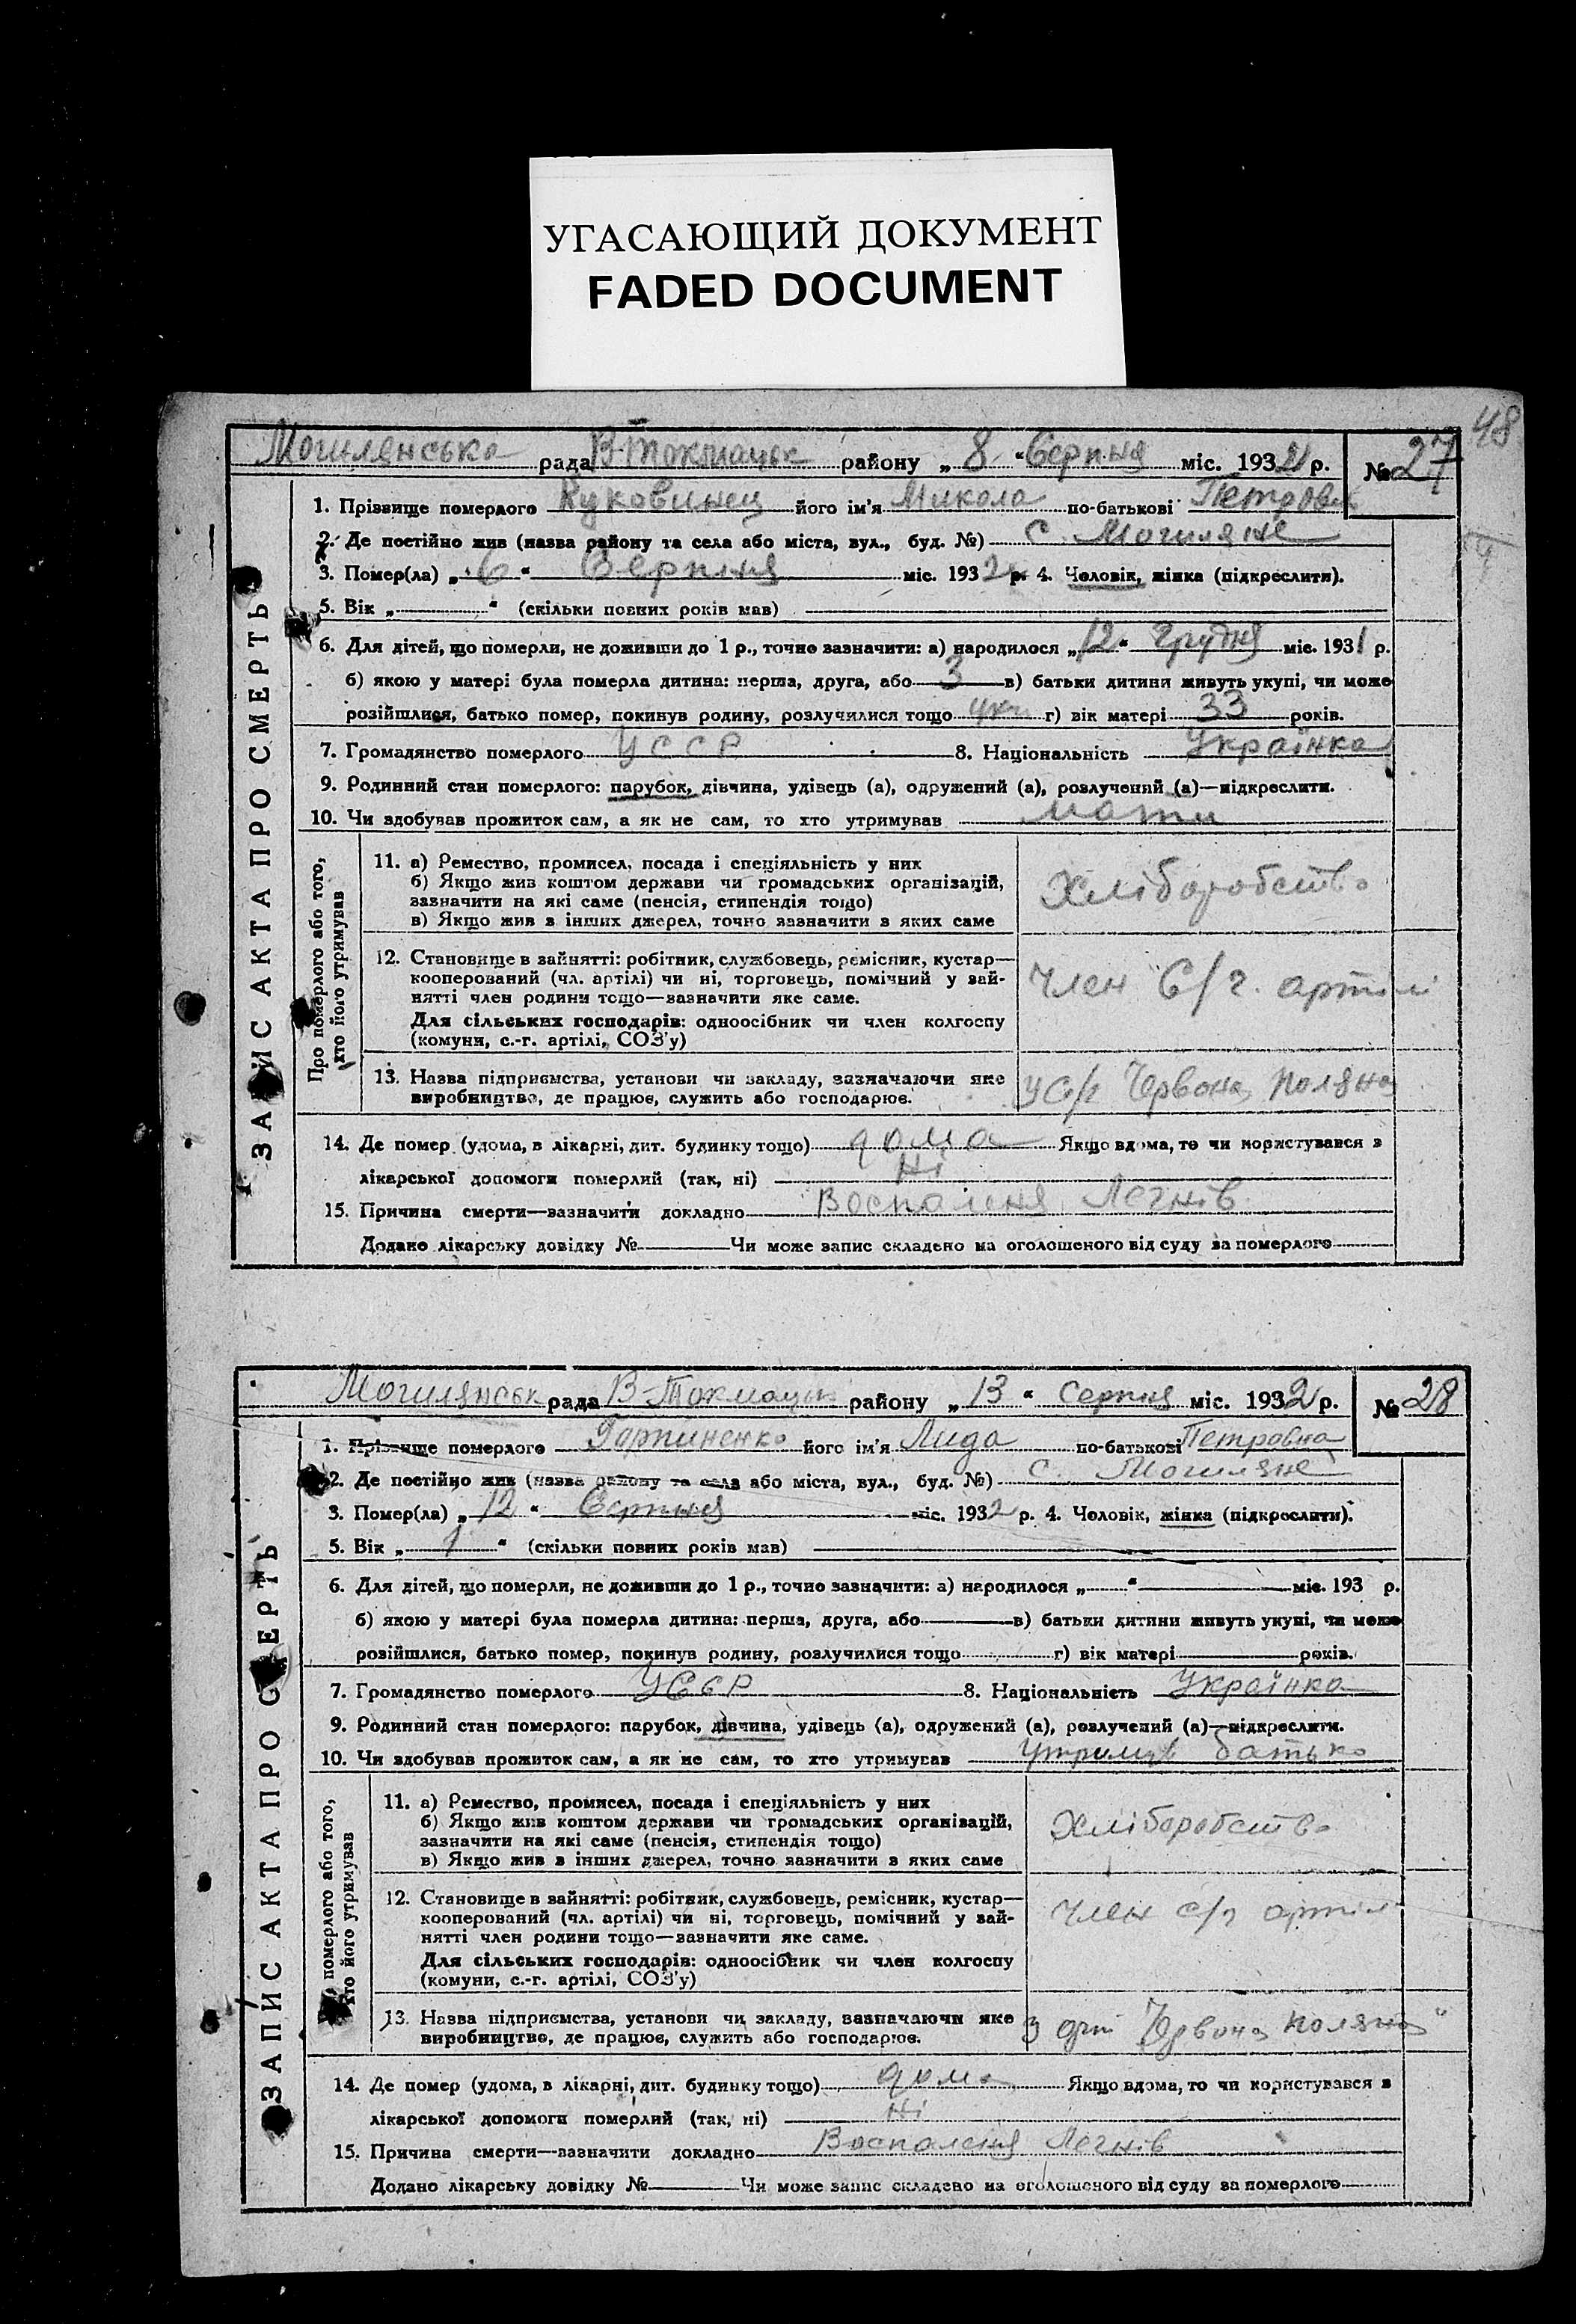 УГАСАЮЩИЙ ДОКУМЕНТ
FADED DOCUMENT
48
Могилянська рада В-Токмацьк району „ 8 “ Серпня міс. 1932 р. № 27
1. Прізвище померлого Куковинец його ім'я Микола по-батькові Петрович
2. Де постійно жив (назва району та села або міста, вул., буд. №) с. Могиляне
3. Помер(ла) „ 6 “ Серпня міс. 1932 р. 4. Чоловік, жінка (підкреслити).
5. Вік „ “ (скільки повних років мав)
6. Для дітей, що померли, не доживши до 1 р., точно зазначити: а) народилося „ 12 “ Грудня міс. 1931 р.
б) якою у матері була померла дитина: перша, друга, або 3 в) батьки дитини живуть укупі, чи може
розійшлися, батько помер, покинув родину, розлучилися тощо г) вік матері 33 років.
7. Громадянство померлого УССР 8. Національність Українка
9. Родинний стан померлого: парубок, дівчина, удівець (а), одружений (а), розлучений (а)—підкреслити.
10. Чи здобував прожиток сам, а як не сам, то хто утримував мати
ЗАПИС АКТА ПРО СМЕРТЬ
Про померлого або того,
хто його утримував
11. а) Ремество, промисел, посада і спеціяльність у них
б) Якщо жив коштом держави чи громадських організацій,
зазначити на які саме (пенсія, стипендія тощо)
в) Якщо жив з інших джерел, точно зазначити з яких саме
Хліборобство
12. Становище в зайнятті: робітник, службовець, ремісник, кустар—
кооперований (чл. артілі) чи ні, торговець, помічний у зай-
нятті член родини тощо—зазначити яке саме.
Для сільських господарів: одноосібник чи член колгоспу
(комуни, с.-г. артілі, СОЗ'у)
Член С/г. артілі
13. Назва підприємства, установи чи закладу, зазначаючи яке
виробництво, де працює, служить або господарює.
У С/г Червона Поляна
14. Де помер (удома, в лікарні, дит. будинку тощо) дома Якщо вдома, то чи користувався з
лікарської допомоги померлий (так, ні) Ні
15. Причина смерти—зазначити докладно Воспаленя Легнів
Додано лікарську довідку № Чи може запис складено на оголошеного від суду за померлого
Могилянськ рада В-Токмацьк району „ 13 “ Серпня міс. 1932 р. № 28
1. Прізвище померлого Горпиненко його ім'я Лида по-батькові Петровна
2. Де постійно жив (назва району та села або міста, вул., буд. №) с. Могиляне
3. Помер(ла) „ 12 “ Серпня міс. 1932 р. 4. Чоловік, жінка (підкреслити).
5. Вік „ 1 “ (скільки повних років мав)
6. Для дітей, що померли, не доживши до 1 р., точно зазначити: а) народилося „ “ міс. 193 р.
б) якою у матері була померла дитина: перша, друга, або в) батьки дитини живуть укупі, чи може
розійшлися, батько помер, покинув родину, розлучилися тощо г) вік матері років.
7. Громадянство померлого УССР 8. Національність Українка
9. Родинний стан померлого: парубок, дівчина, удівець (а), одружений (а), розлучений (а)—підкреслити.
10. Чи здобував прожиток сам, а як не сам, то хто утримував батько
ЗАПИС АКТА ПРО СМЕРТЬ
померлого або того,
хто його утримував
11. а) Ремество, промисел, посада і спеціяльність у них
б) Якщо жив коштом держави чи громадських організацій,
зазначити на які саме (пенсія, стипендія тощо)
в) Якщо жив з інших джерел, точно зазначити з яких саме
Хліборобство
12. Становище в зайнятті: робітник, службовець, ремісник, кустар—
кооперований (чл. артілі) чи ні, торговець, помічний у зай-
нятті член родини тощо—зазначити яке саме.
Для сільських господарів: одноосібник чи член колгоспу
(комуни, с.-г. артілі, СОЗ'у)
Член с/г артіл
13. Назва підприємства, установи чи закладу, зазначаючи яке
виробництво, де працює, служить або господарює.
З Червона Поляна“
14. Де помер (удома, в лікарні, дит. будинку тощо) дома Якщо вдома, то чи користувався з
лікарської допомоги померлий (так, ні) Ні
15. Причина смерти—зазначити докладно Воспаленя Легнів
Додано лікарську довідку № Чи може запис складено на оголошеного від суду за померлого